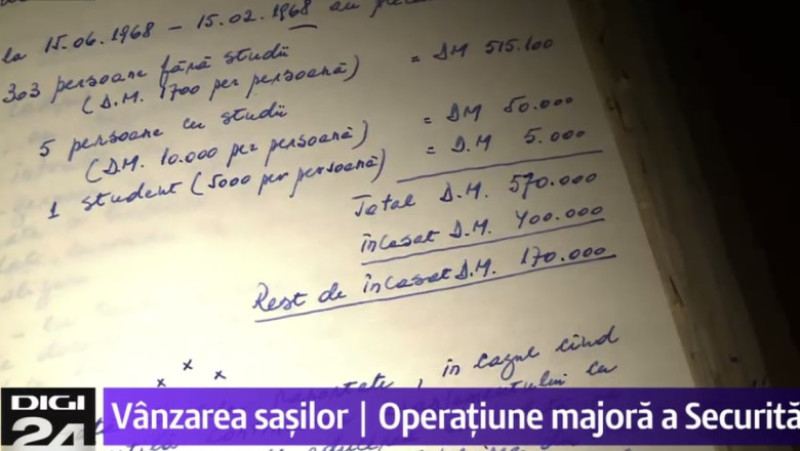 la 15.06.1968 – 15.02.1968 au
303 persoane fără studii = DM 515.100
(D.M. 1700 per persoană)
5 persoane cu studii = DM 50.000
(D.M. 10.000 per persoană)
1 student (5000 per persoană) = D.M 5.000
Total D.M. 570.000
încasat D.M. 400.000
Rest de încasat D.M. 170.000
x x x
, în cazul cînd
DIGI 24
Vânzarea sașilor | Operațiune majoră a Securită